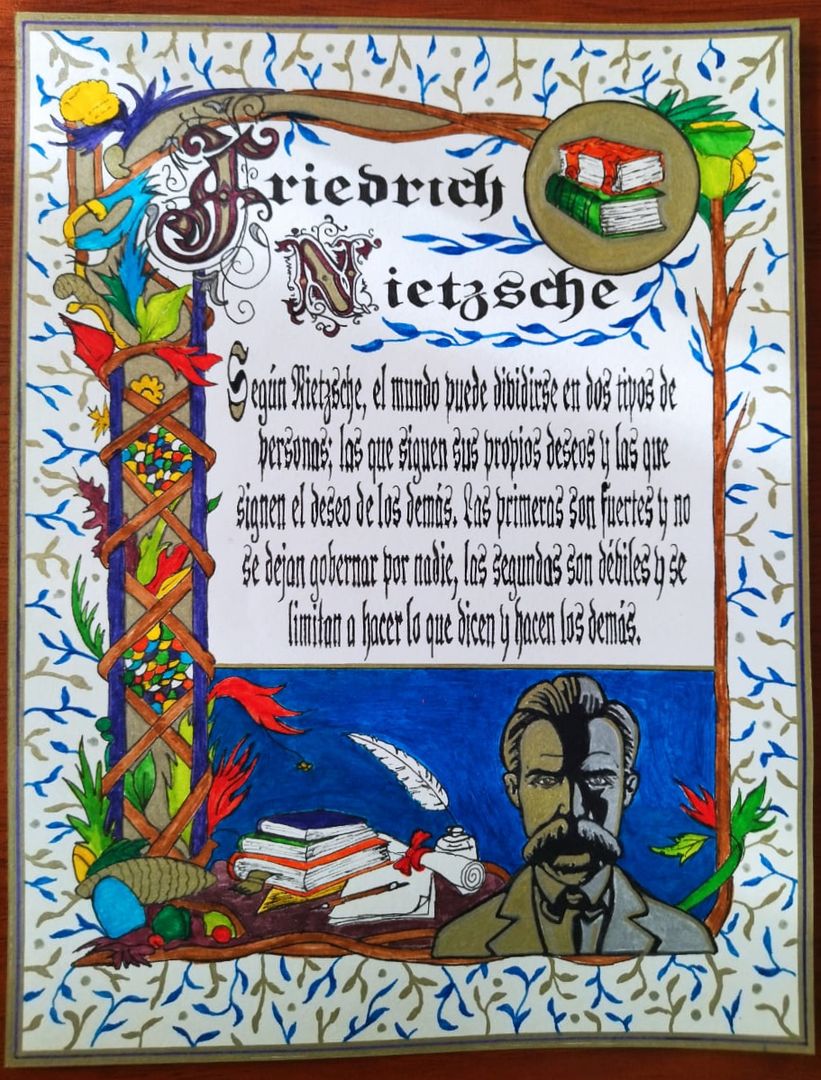 Friedrich
Nietzsche
Según Nietzsche, el mundo puede dividirse en dos tipos de
personas; las que siguen sus propios deseos y las que
signen el deseo de los demás. Las primeras son fuertes y no
se dejan gobernar por nadie, las segundas son débiles y se
limitan a hacer lo que dicen y hacen los demás.